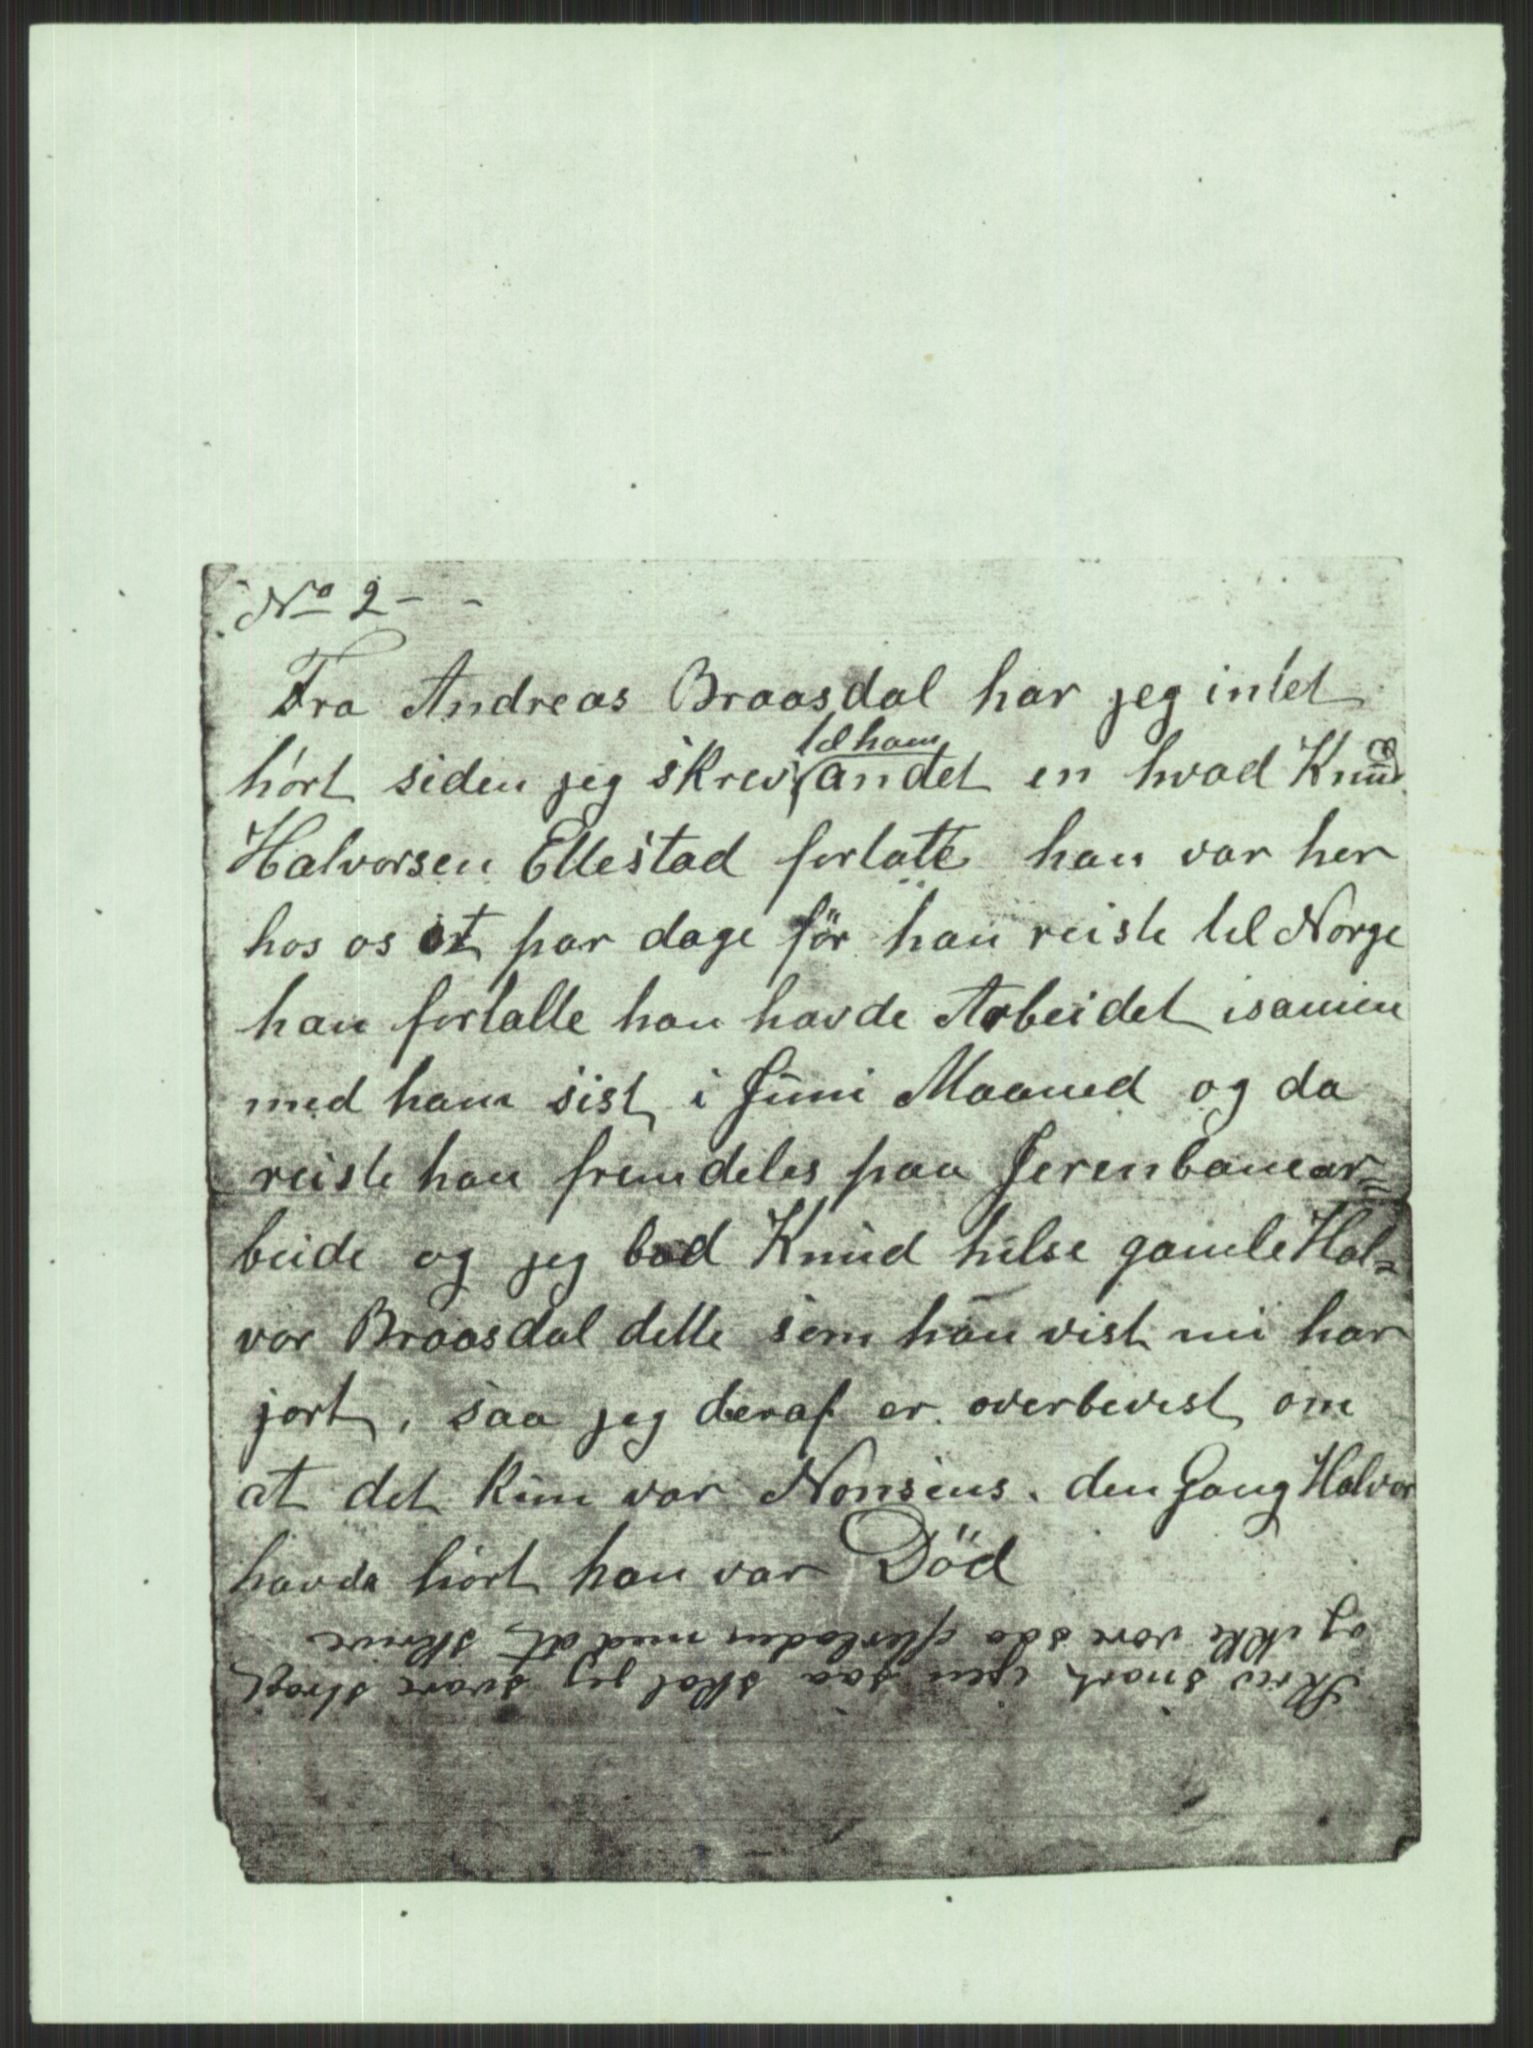 No 2 - -
Fra Andreas Braasdal har jeg intet
til ham
hört siden jeg skrev andet en hvad Knud
Halvorsen Ellestad fortalte han var her
hos os et par dage för han reiste til Norge
han fortalte han havde Arbeidet isamen
med ham sist i Juni Maaned og da
reiste han fremdeles paa Jerenbanear=
beide og jeg bad Knud hilse gamle Hal=
vor Braasdal dette som han vist nu har
jort, saa jeg deraf er overbevist om
at det kun var Nonsens. den Gang Halvor
havde hört han var Död
Skriv snart igen saa skal jeg svare strax
og ikke vore saa efterladen med at skrive